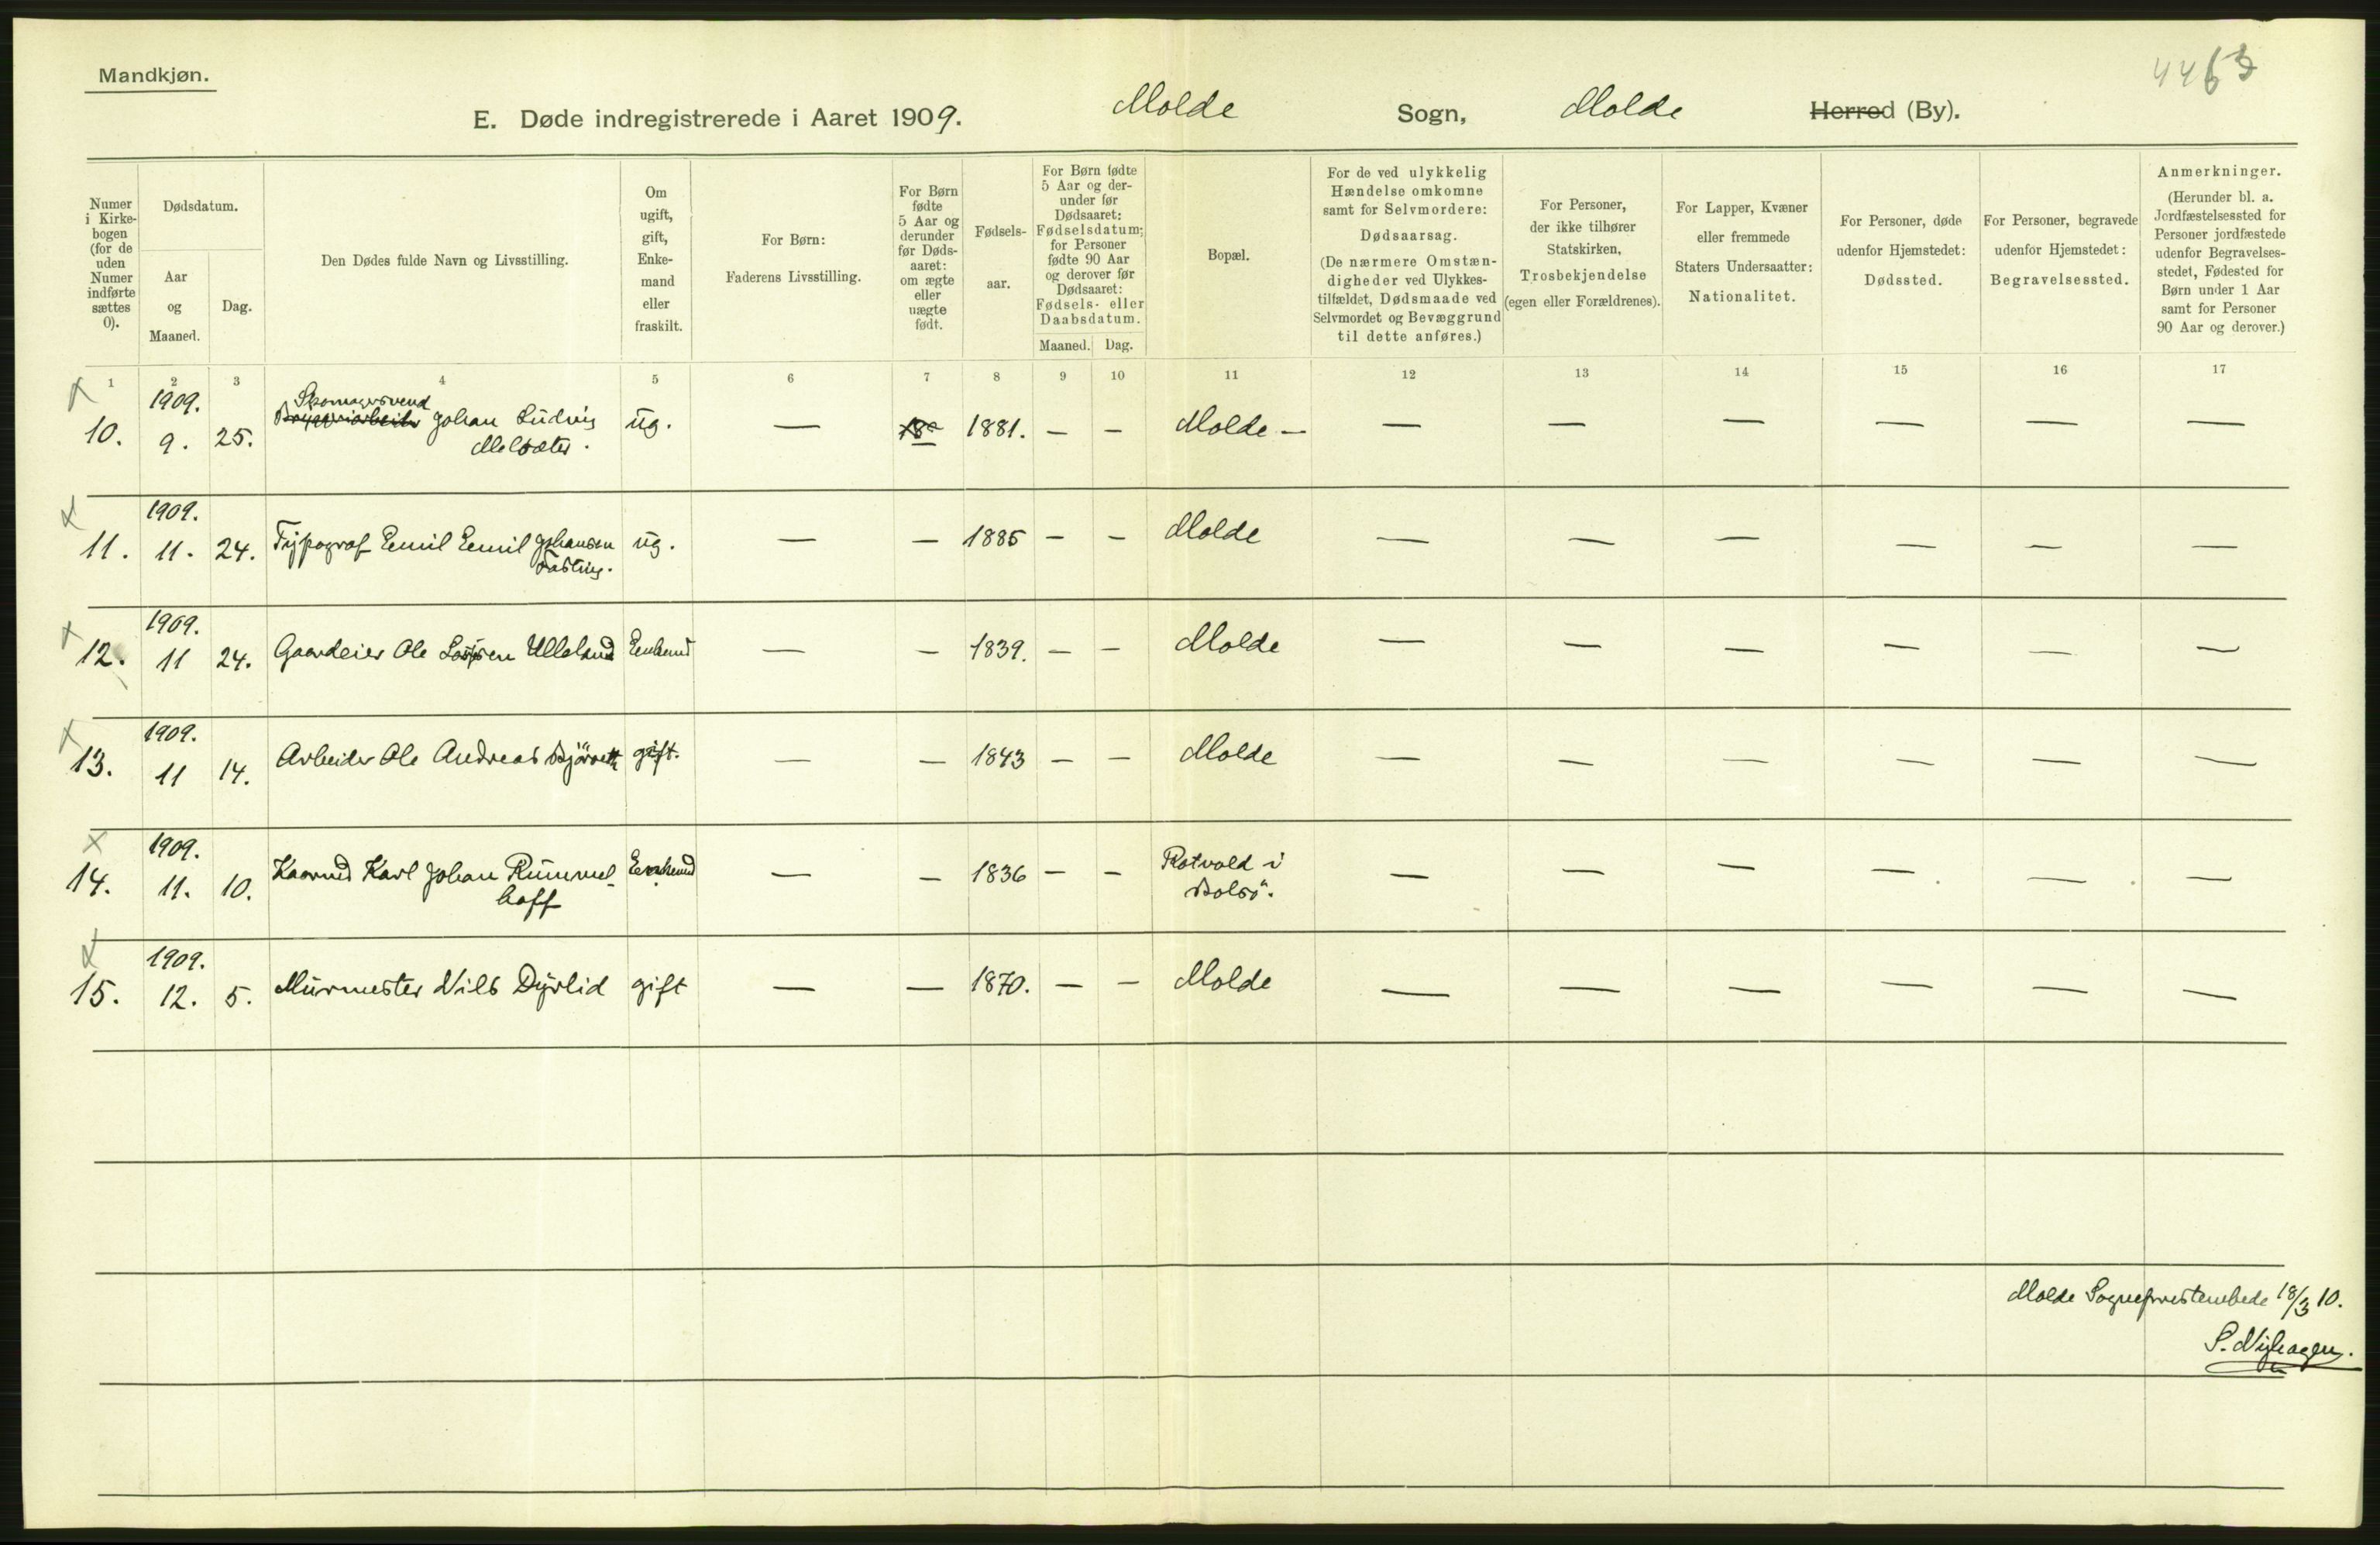 Mandkjøn.
4463
E. Døde indregistrerede i Aaret 1909. Molde Sogn, Molde Herred (By).
Numer i Kirkebogen (for de uden Numer indførte sættes 0).
Dødsdatum.
Aar og Maaned.
Dag.
Den Dødes fulde Navn og Livsstilling.
Om ugift, gift, Enkemand eller fraskilt.
For Børn:
Faderens Livsstilling.
For Børn fødte 5 Aar og derunder før Dødsaaret: om ægte eller uægte født.
Fødselsaar.
For Børn fødte 5 Aar og derunder før Dødsaaret: Fødselsdatum; for Personer fødte 90 Aar og derover før Dødsaaret: Fødsels- eller Daabsdatum.
Maaned. Dag.
Bopæl.
For de ved ulykkelig Hændelse omkomne samt for Selvmordere:
Dødsaarsag.
(De nærmere Omstændigheder ved Ulykkestilfældet, Dødsmaade ved Selvmordet og Bevæggrund til dette anføres.)
For Personer, der ikke tilhører Statskirken,
Trosbekjendelse
(egen eller Forældrenes).
For Lapper, Kvæner eller fremmede Staters Undersaatter:
Nationalitet.
For Personer, døde udenfor Hjemstedet:
Dødssted.
For Personer, begravede udenfor Hjemstedet:
Begravelsessted.
Anmerkninger.
(Herunder bl. a. Jordfæstelsessted for Personer jordfæstede udenfor Begravelsesstedet, Fødested for Børn under 1 Aar samt for Personer 90 Aar og derover.)
1 2 3 4 5 6 7 8 9 10 11 12 13 14 15 16 17
1909. Skomagersvend
10. 9. 25. Johan Ludvig ug. — 1881. — — Molde — — — — — — —
Melsæter.
1909.
11. 11. 24. Typograf Emil Emil Johansen ug. — — 1885 — — Molde — — — — — —
Fasting.
1909.
12. 11 24. Gaardeier Ole Ulleland Enkemd — — 1839. — — Molde — — — — — —
1909.
13. 11 14. Arbeider Ole Andreas gift. — — 1843 — — Molde — — — — — —
1909.
14. 11. 10. Karl Johan Rummel- Enkemd — — 1836 — — Rotvold i — — — — — —
hoff Bolsö.
1909.
15. 12. 5. Murmester Nils Dyrlid gift — — 1870. — — Molde — — — — — —
Molde Sogneprestembede 18/3 10.
S. Nyhagen.